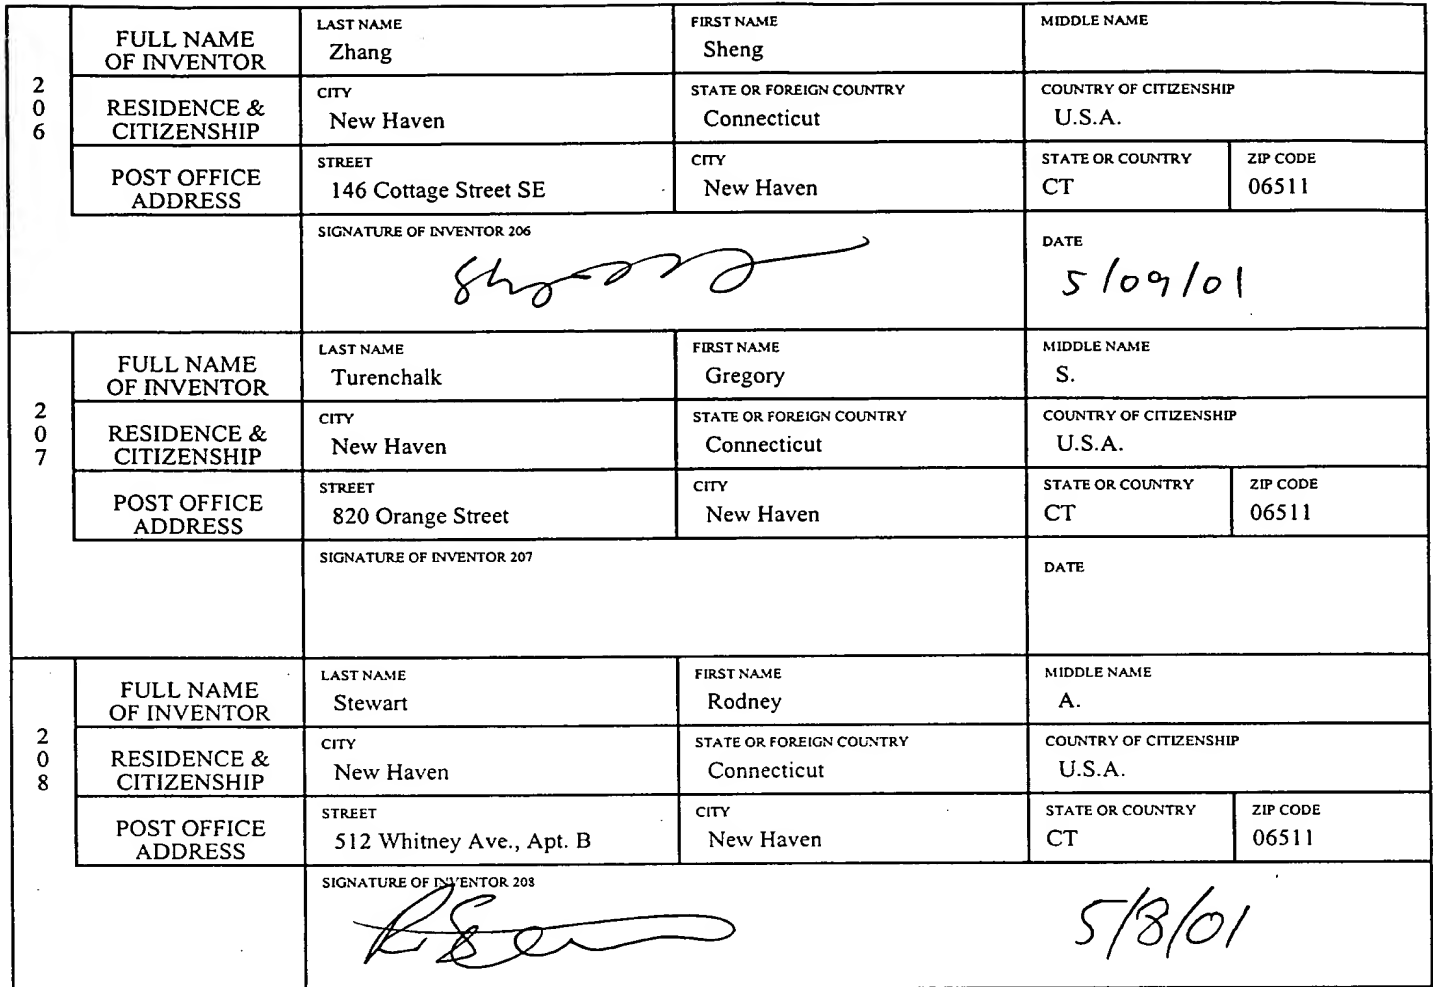 206
FULL NAME OF INVENTOR
LAST NAME
Zhang
FIRST NAME
Sheng
MIDDLE NAME
RESIDENCE & CITIZENSHIP
CITY
New Haven
STATE OR FOREIGN COUNTRY
Connecticut
COUNTRY OF CITIZENSHIP
U.S.A.
POST OFFICE ADDRESS
STREET
146 Cottage Street SE
CITY
New Haven
STATE OR COUNTRY
CT
ZIP CODE
06511
SIGNATURE OF INVENTOR 206
DATE
5/09/01
207
FULL NAME OF INVENTOR
LAST NAME
Turenchalk
FIRST NAME
Gregory
MIDDLE NAME
S.
RESIDENCE & CITIZENSHIP
CITY
New Haven
STATE OR FOREIGN COUNTRY
Connecticut
COUNTRY OF CITIZENSHIP
U.S.A.
POST OFFICE ADDRESS
STREET
820 Orange Street
CITY
New Haven
STATE OR COUNTRY
CT
ZIP CODE
06511
SIGNATURE OF INVENTOR 207
DATE
208
FULL NAME OF INVENTOR
LAST NAME
Stewart
FIRST NAME
Rodney
MIDDLE NAME
A.
RESIDENCE & CITIZENSHIP
CITY
New Haven
STATE OR FOREIGN COUNTRY
Connecticut
COUNTRY OF CITIZENSHIP
U.S.A.
POST OFFICE ADDRESS
STREET
512 Whitney Ave., Apt. B
CITY
New Haven
STATE OR COUNTRY
CT
ZIP CODE
06511
SIGNATURE OF INVENTOR 208
5/8/01